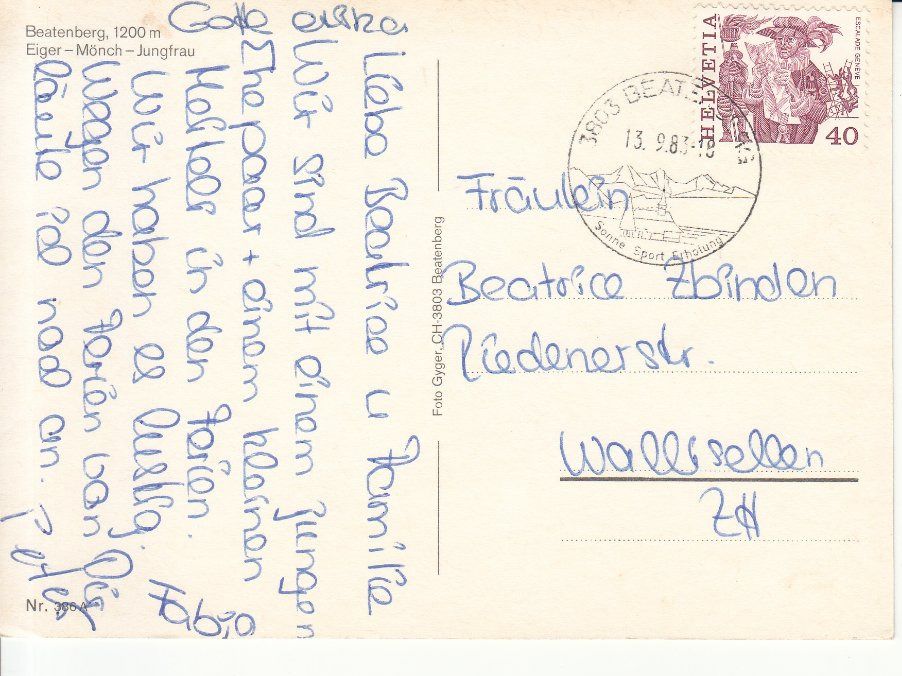 Beatenberg, 1200 m
Eiger – Mönch – Jungfrau
Liebe Beatrice u Familie
Wir sind mit einem jungen
Ehepaar + einem kleinen
in den Ferien.
Wir haben es lustig.
Wegen den Ferien von Dir
läute ich noch an.
Peter
Fabio
Nr. 386A
Foto Gyger, CH-3803 Beatenberg
HELVETIA
ESCALADE GENÈVE
40
3803 BEATENBERG
13. 9.83-18
Sonne Sport Erholung
Fräulein
Beatrice Zbinden
Riedenerstr.
Wallisellen
ZH